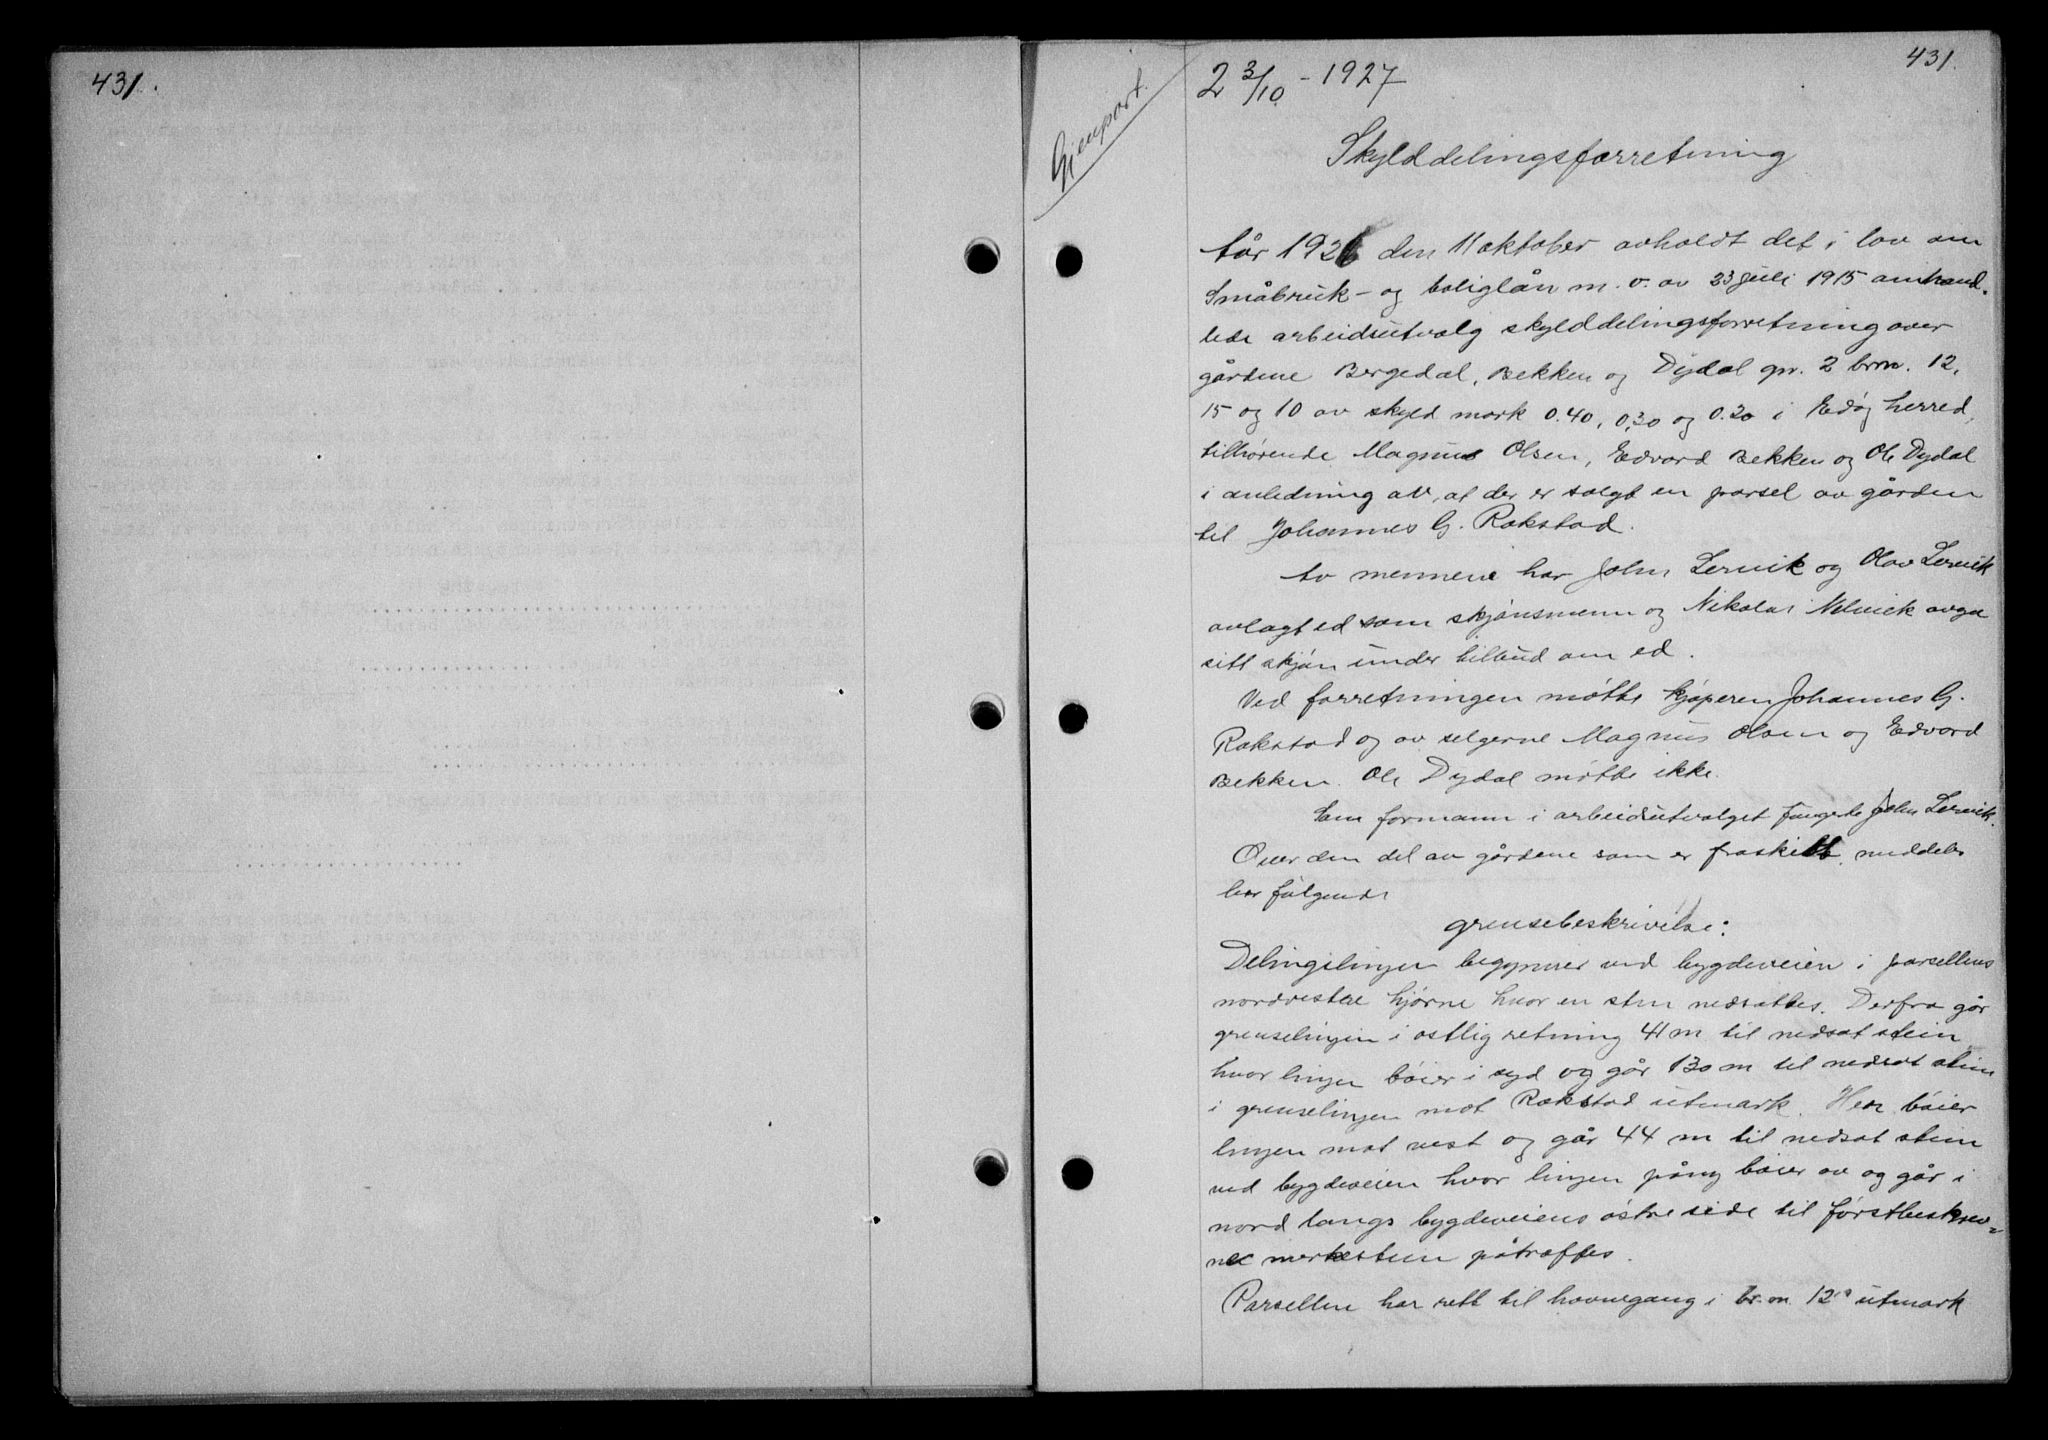 431.
431.
2 3/10 - 1927
Gjenpart.
Skylddelingsforretning
År 1926 den 11 oktober avholdt det i lov om
Småbruk- og boliglån m. v. av 23 juli 1915 omhand-
lede arbeidsutvalg skylddelingsforretning over
gårdene Bergedal, Bekken og Dydal gnr. 2 brnr. 12,
15 og 10 av skyld mark 0.40, 0,30 og 0.20 i Edøy herred,
tilhørende Magnus Olsen, Edvard Bekken og Ole Dydal
i anledning av, at der er solgt en parsel av gården
til Johannes G. Rokstad.
Av mennene har John Lervik og Olav Lervik
avlagt ed som skjønsmenn og Nikolai Nelvik avga
sitt skjøn under tilbud om ed.
Ved forretningen møtte kjøperen Johannes G.
Rokstad og av selgerne Magnus Olsen og Edvard
Bekken. Ole Dydal møtte ikke.
Som formann i arbeidsutvalget fungerte John Lervik.
Over den del av gårdene som er fraskilt, meddeles
her følgende
grensebeskrivelse:
Delingslinjen begynner ved bygdeveien i parsellens
nordvestre hjørne hvor en sten nedsattes. Derfra går
grenselinjen i østlig retning 41 m til nedsat stein
hvor linjen bøier i syd og går 130 m til nedsat stein
i grenselinjen mot Rokstad utmark. Her bøier
linjen mot vest og går 44 m til nedsat stein
ved bygdeveien hvor linjen påny bøier av og går i
nord langs bygdeveiens østre side til førstbeskrev-
ne merkestein påtræffes.
Parsellen har rett til havnegang i br.nr. 12s utmark